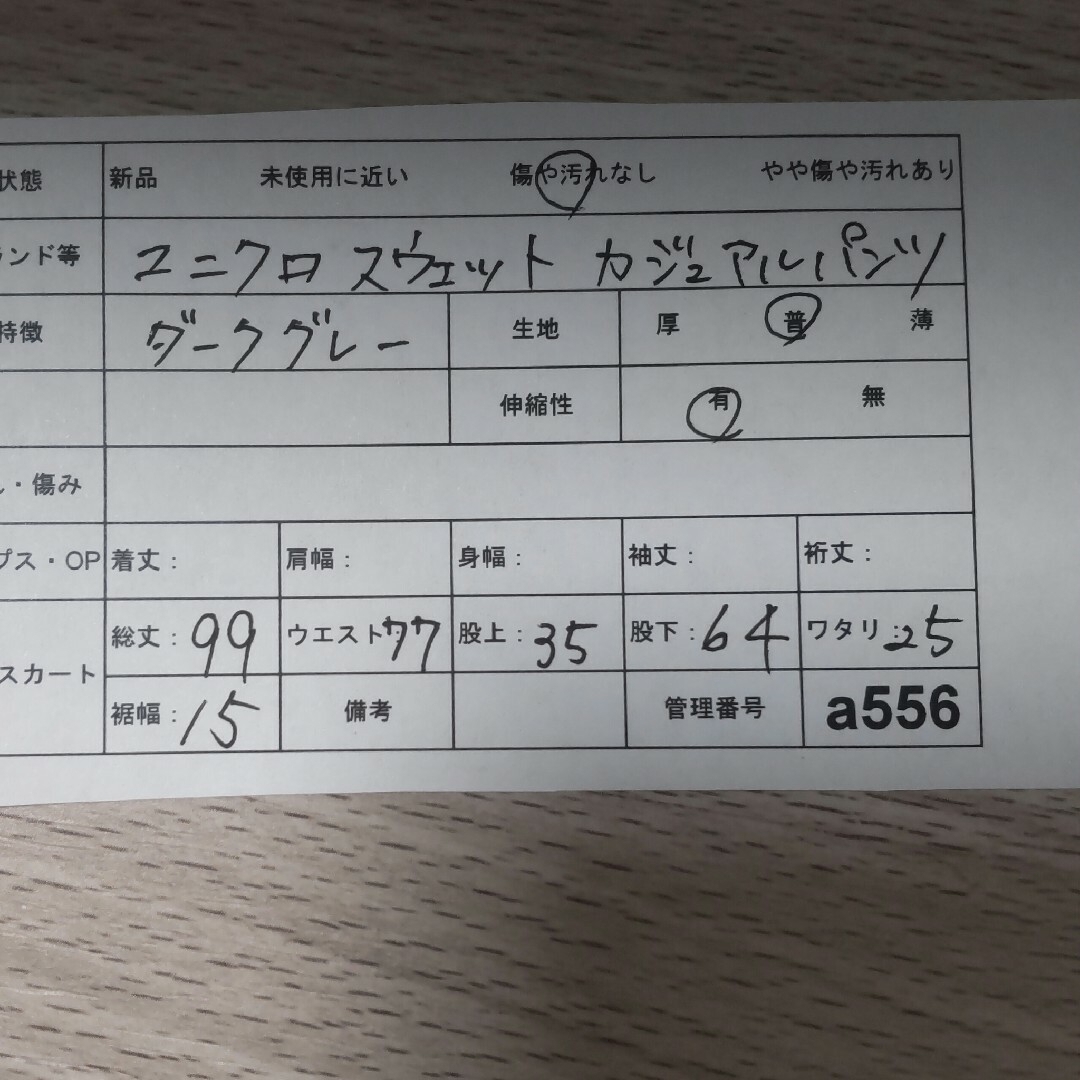 状態 新品 未使用に近い 傷や汚れなし やや傷や汚れあり
ランド等 ユニクロ スウェット カジュアルパンツ
特徴 ダークグレー 生地 厚 普 薄
伸縮性 有 無
・傷み
プス・OP 着丈: 肩幅: 身幅: 袖丈: 裄丈:
総丈:99 ウエスト77 股上:35 股下:64 ワタリ:25
スカート
裾幅:15 備考 管理番号 a556